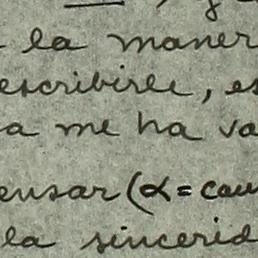 la maner
escribirle, es
a me ha va
ensar (α = cau
la sincerid